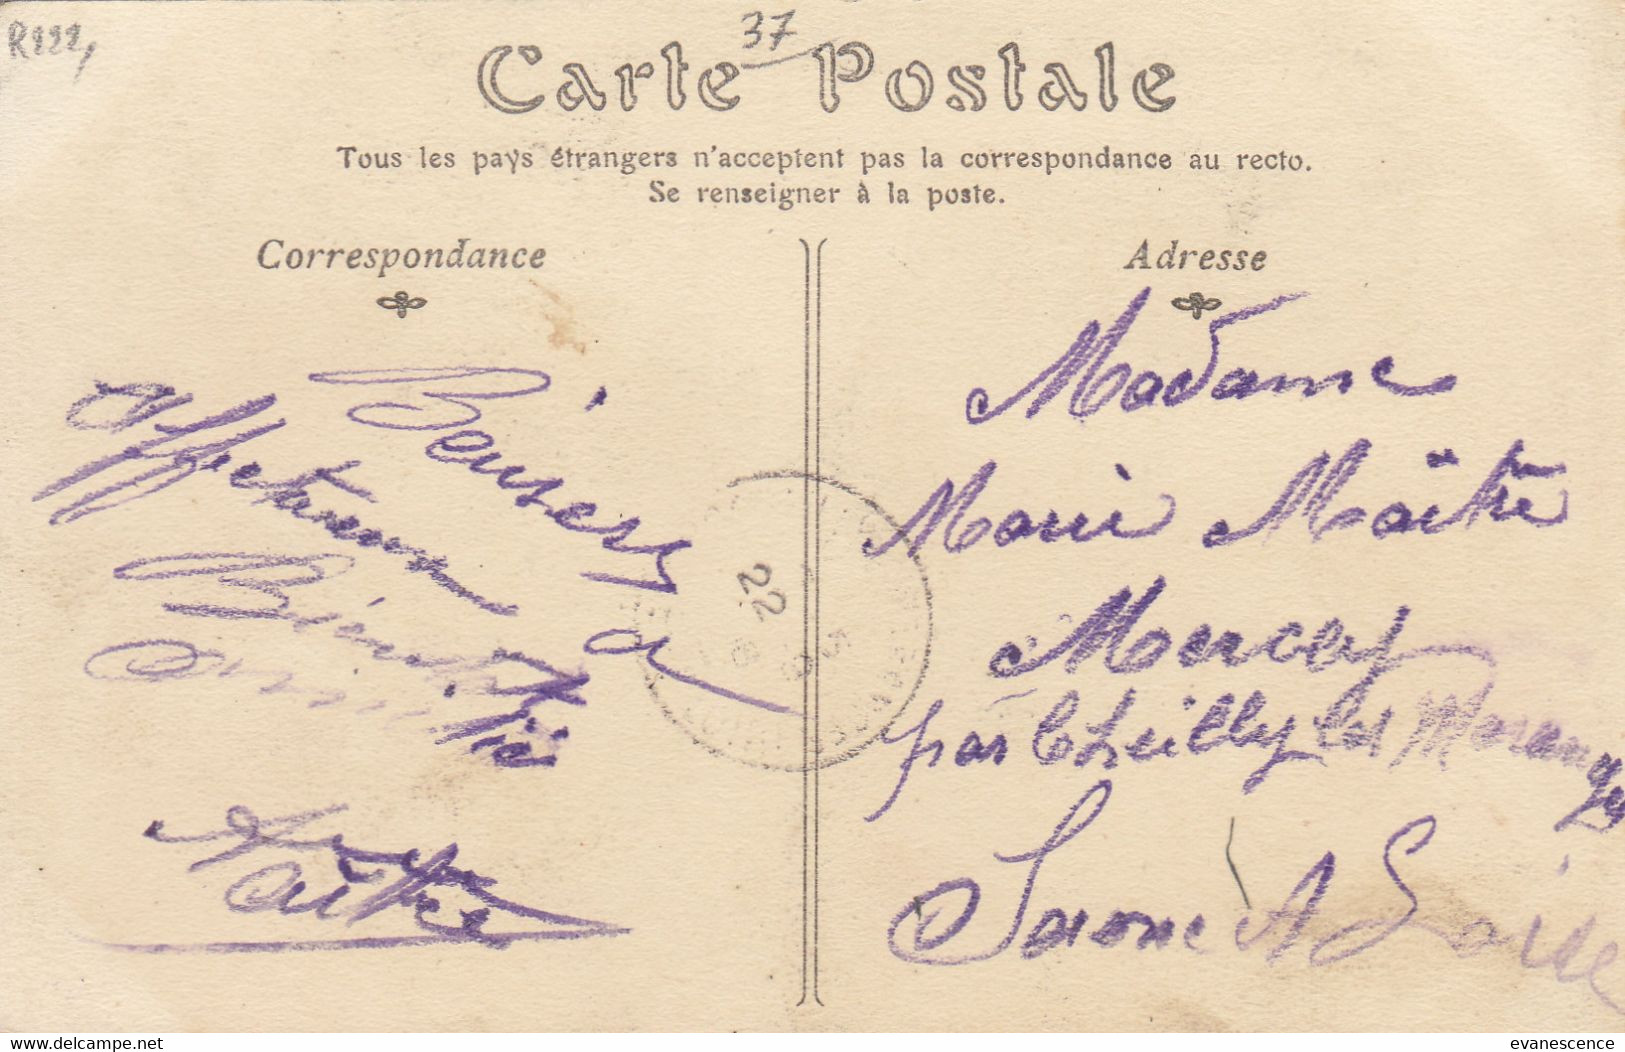 R222,
37
Carte Postale
Tous les pays étrangers n'acceptent pas la correspondance au recto.
Se renseigner à la poste.
Correspondance
Baisers
affectueux
Bientôt
Maitre
Adresse
Madame
Marie Maître
Morcey
par Cheilly les Maranges
Saone A Loire
22
evanescence